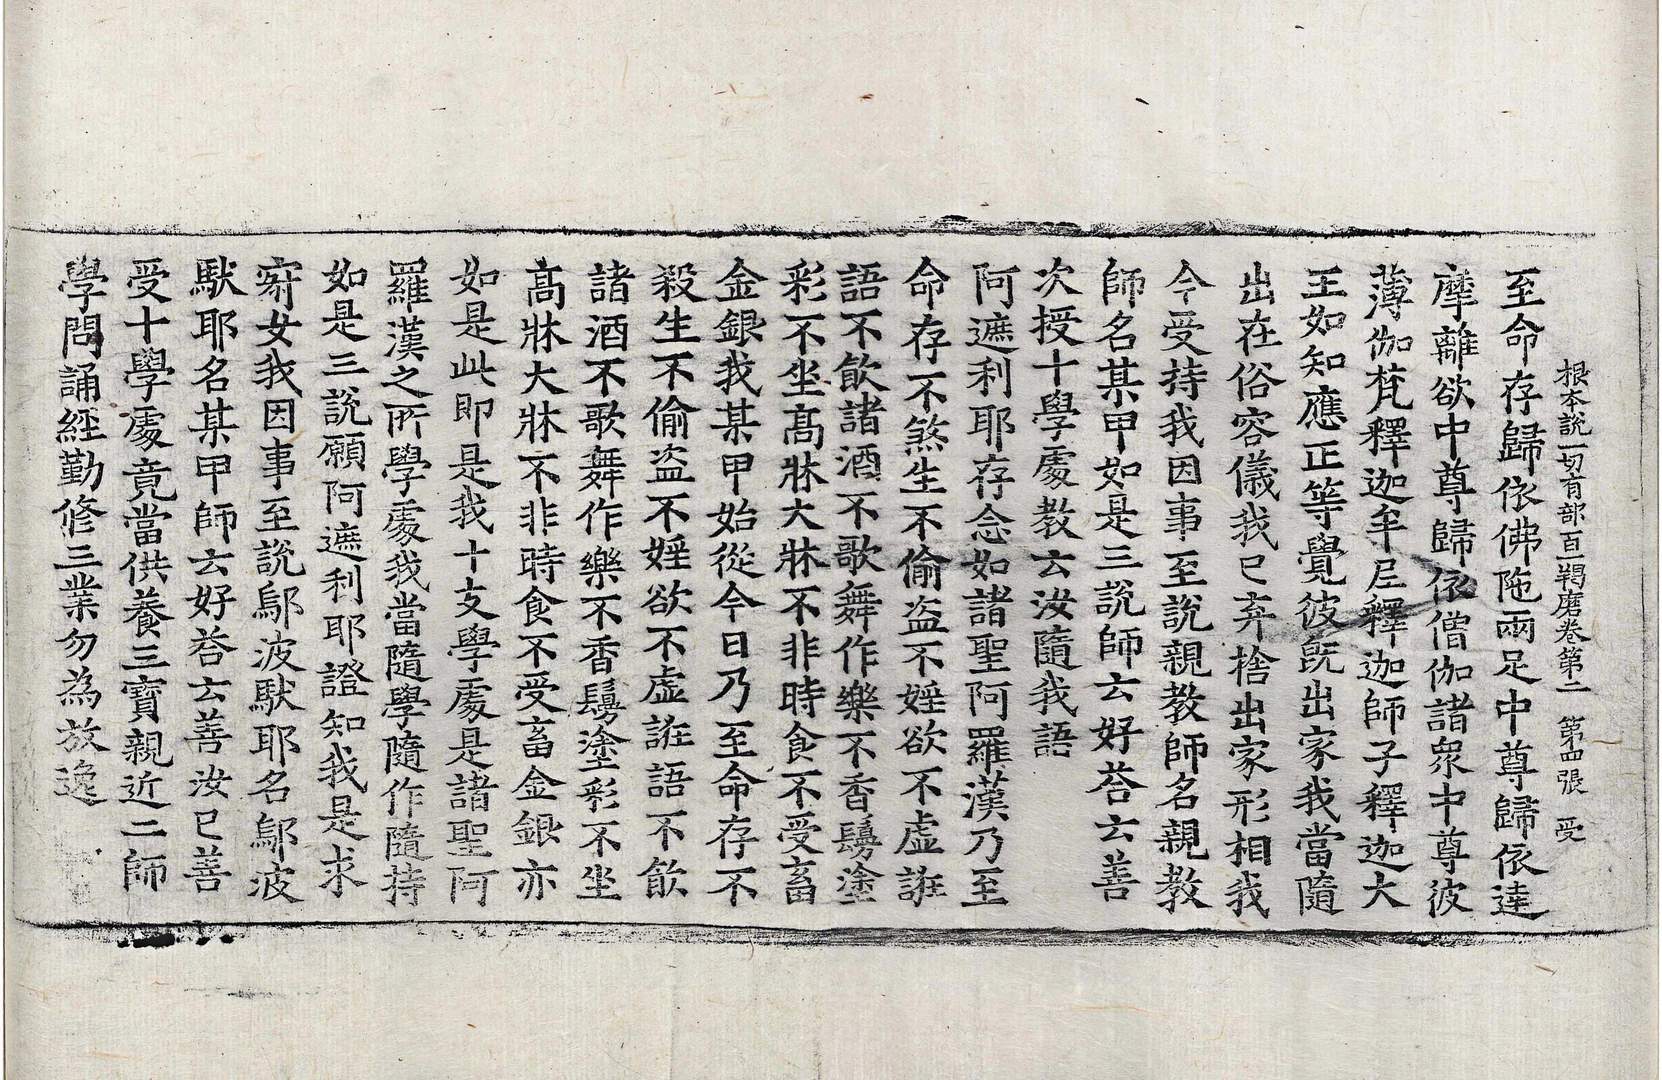 根本說一切有部百羯磨卷第二　第四張　受
至命存歸依佛陁兩足中尊歸依達
摩離欲中尊歸依僧伽諸衆中尊彼
薄伽梵釋迦牟尼釋迦師子釋迦大
王如知應正等覺彼旣出家我當隨
出在俗容儀我已弃捨出家形相我
今受持我因事至說親教師名親教
師名某甲如是三說師云好荅云善
次授十學處教云汝隨我語
阿遮利耶存念如諸聖阿羅漢乃至
命存不煞生不偷盗不婬欲不虛誑
語不飮諸酒不歌舞作樂不香鬘塗
彩不坐髙牀大牀不非時食不受畜
金銀我某甲始從今日乃至命存不
殺生不偷盗不婬欲不虛誑語不飮
諸酒不歌舞作樂不香鬘塗彩不坐
髙牀大牀不非時食不受畜金銀亦
如是此即是我十支學處是諸聖阿
羅漢之所學處我當隨學隨作隨持
如是三說願阿遮利耶證知我是求
寂女我因事至說鄔波馱耶名鄔波
馱耶名某甲師云好荅云善汝已善
受十學處竟當供養三寶親近二師
學問誦經勤修三業勿爲放逸